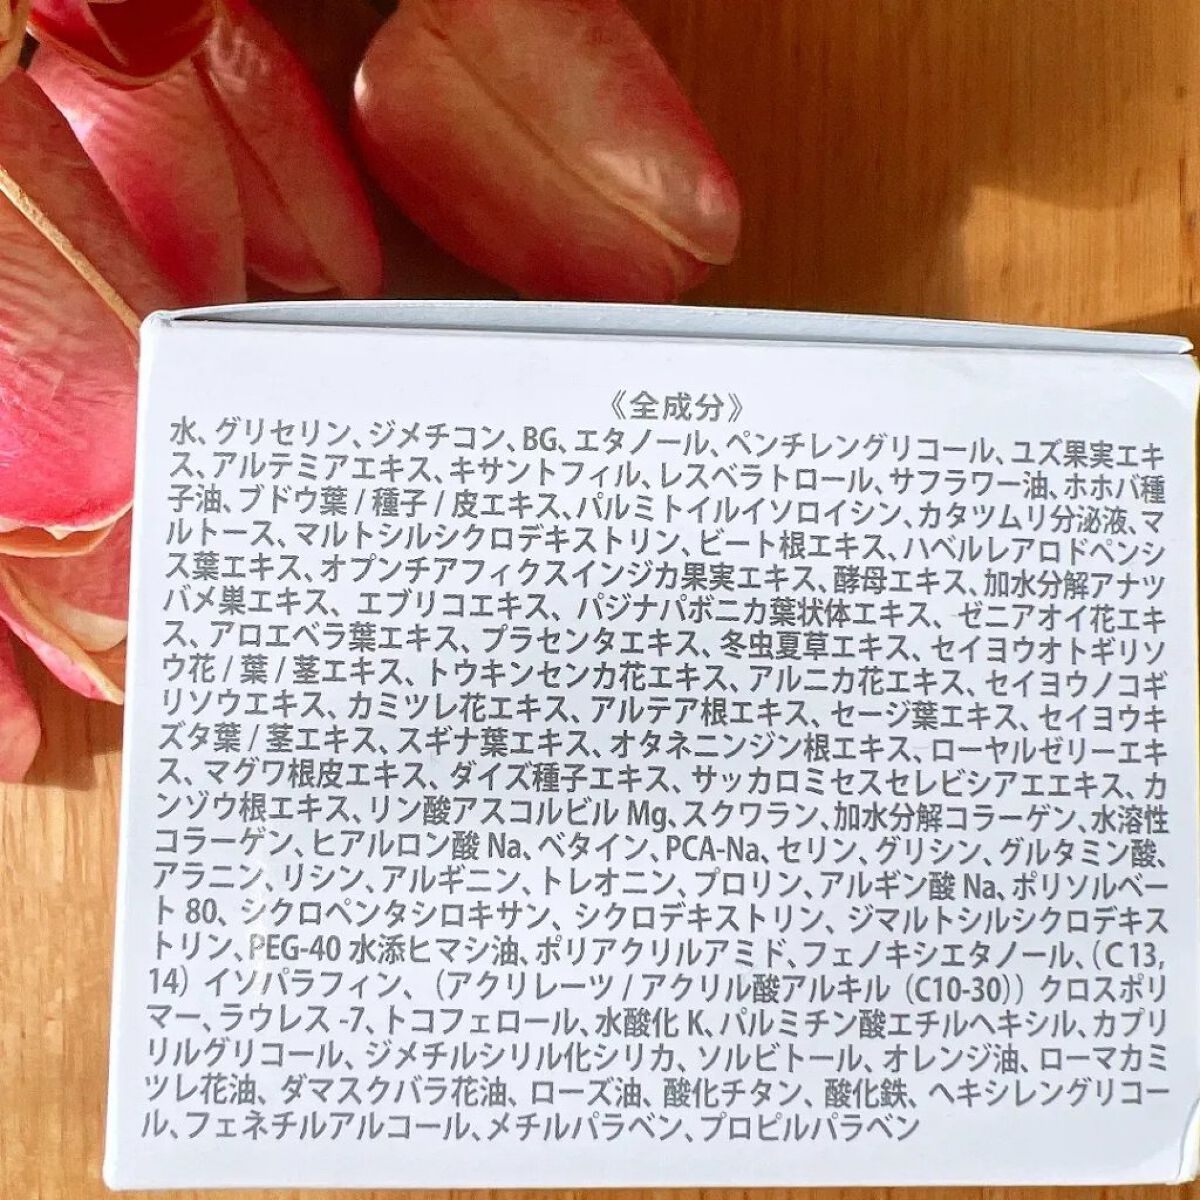 《全成分》
水、グリセリン、ジメチコン、BG、エタノール、ペンチレングリコール、ユズ果実エキ
ス、アルテミアエキス、キサントフィル、レスベラトロール、サフラワー油、ホホバ種
子油、ブドウ葉 / 種子 / 皮エキス、パルミトイルイソロイシン、カタツムリ分泌液、マ
ルトース、マルトシルシクロデキストリン、ビート根エキス、ハベルレアロドペンシ
ス葉エキス、オプンチアフィクスインジカ果実エキス、酵母エキス、加水分解アナツ
バメ巣エキス、エブリコエキス、パジナパボニカ葉状体エキス、ゼニアオイ花エキ
ス、アロエベラ葉エキス、プラセンタエキス、冬虫夏草エキス、セイヨウオトギリソ
ウ花 / 葉 / 茎エキス、トウキンセンカ花エキス、アルニカ花エキス、セイヨウノコギ
リソウエキス、カミツレ花エキス、アルテア根エキス、セージ葉エキス、セイヨウキ
ズタ葉 / 茎エキス、スギナ葉エキス、オタネニンジン根エキス、ローヤルゼリーエキ
ス、マグワ根皮エキス、ダイズ種子エキス、サッカロミセスセレビシアエエキス、カ
ンゾウ根エキス、リン酸アスコルビル Mg、スクワラン、加水分解コラーゲン、水溶性
コラーゲン、ヒアルロン酸 Na、ベタイン、PCA-Na、セリン、グリシン、グルタミン酸、
アラニン、リシン、アルギニン、トレオニン、プロリン、アルギン酸 Na、ポリソルベー
ト 80、シクロペンタシロキサン、シクロデキストリン、ジマルトシルシクロデキス
トリン、PEG-40 水添ヒマシ油、ポリアクリルアミド、フェノキシエタノール、（C13,
14）イソパラフィン、（アクリレーツ / アクリル酸アルキル（C10-30））クロスポリ
マー、ラウレス -7、トコフェロール、水酸化 K、パルミチン酸エチルヘキシル、カプリ
リルグリコール、ジメチルシリル化シリカ、ソルビトール、オレンジ油、ローマカミ
ツレ花油、ダマスクバラ花油、ローズ油、酸化チタン、酸化鉄、ヘキシレングリコー
ル、フェネチルアルコール、メチルパラベン、プロピルパラベン